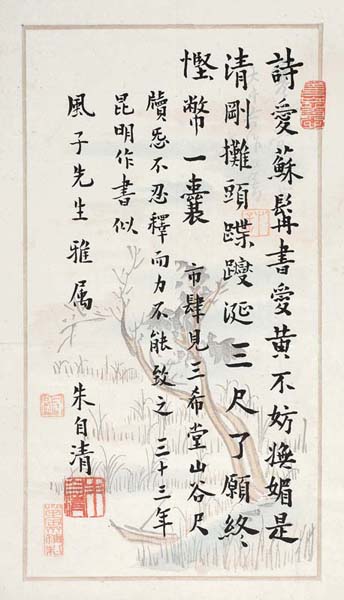 詩愛蘇髯書愛黃不妨嫵媚是
清剛攤頭蹀躞涎三尺了願終
慳幣一囊 市肆見三希堂山谷尺
牘㤅不忍釋而力不能致之 三十三年
昆明作書似
風子先生雅属
朱自清